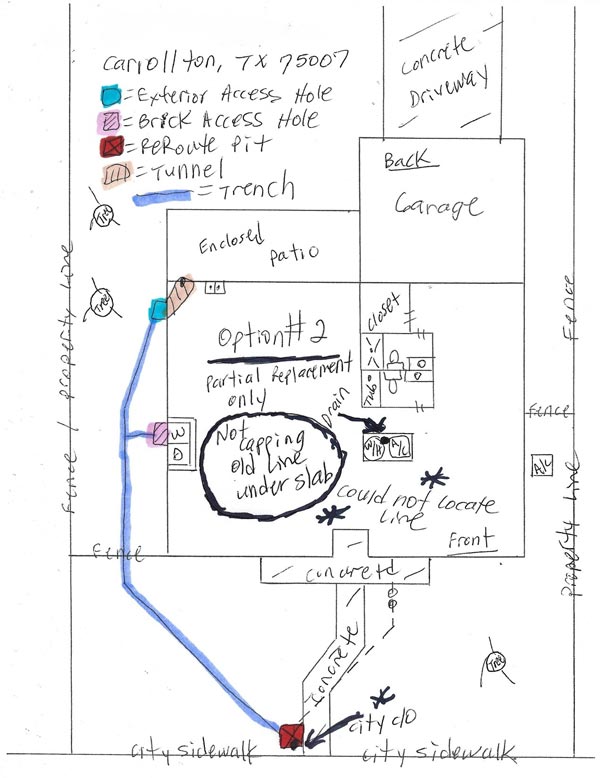 Carrollton, TX 75007
= Exterior Access Hole
= Brick Access Hole
= ReRoute Pit
= Tunnel
= Trench
Concrete
Driveway
Back
Garage
Enclosed
patio
Tree
Tree
closet
Option# 2
partial Replacement
only
Tub
Drain
Not
capping
old Line
under slab
W/H
A/C
W
D
could not Locate
Line
Front
concrete
concrete
Fence / property Line
Fence
Fence
Fence
property Line
A/C
Tree
city c/o
city sidewalk
city sidewalk